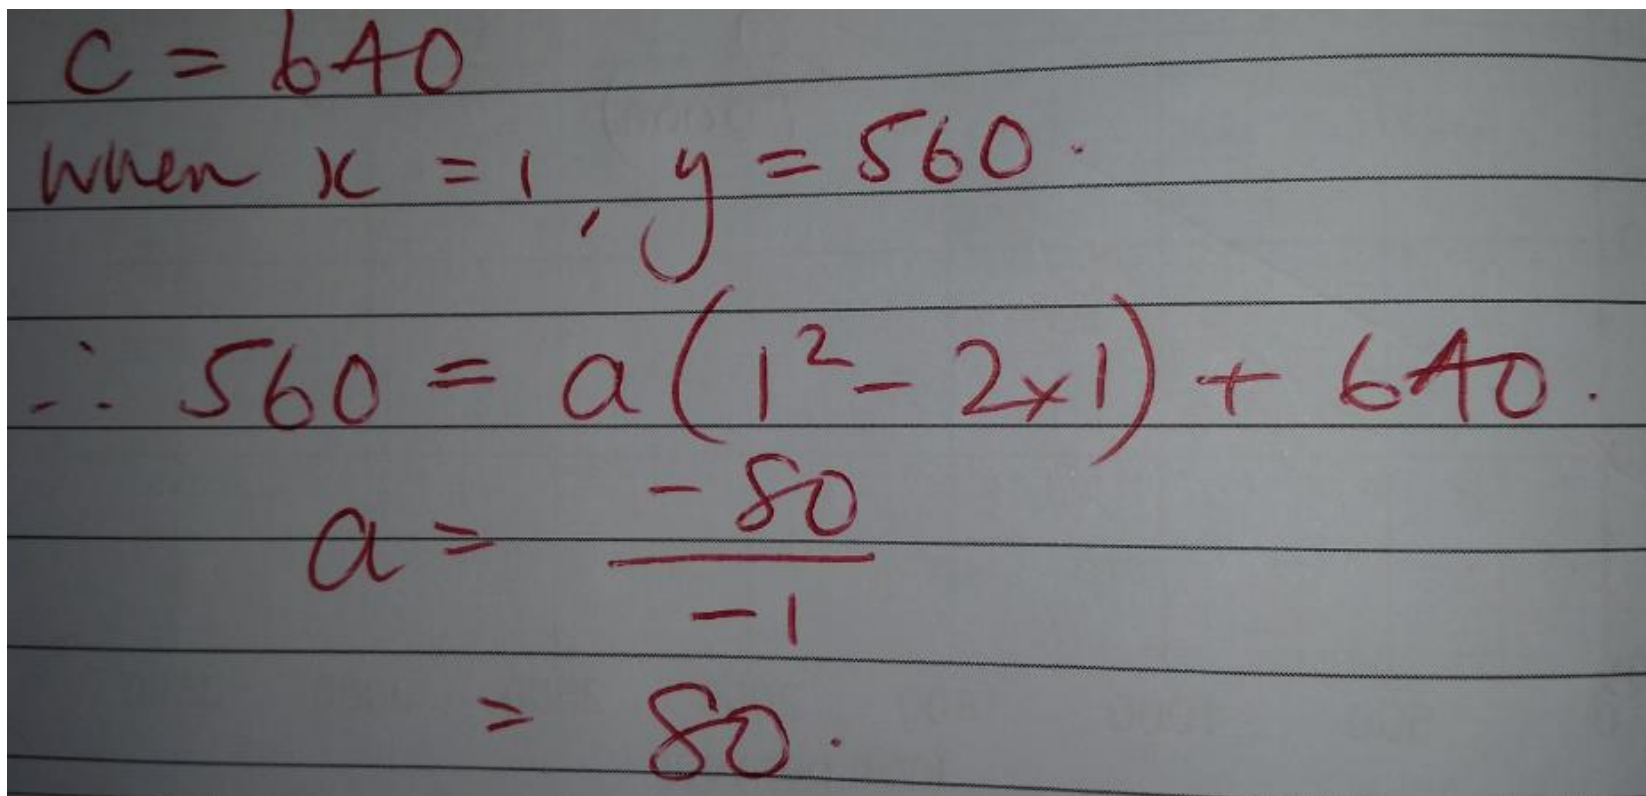 c = 640
when x = 1, y = 560.
∴ 560 = a(1² - 2×1) + 640.
a = -80 / -1
= 80.